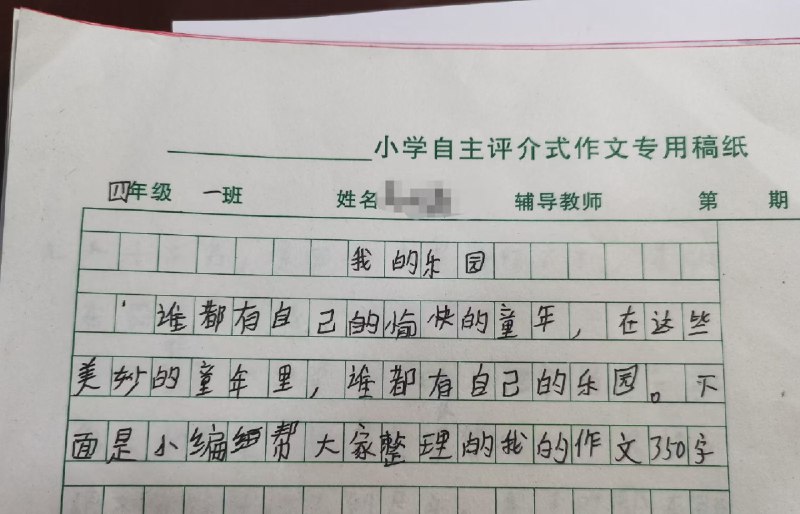 小学自主评介式作文专用稿纸
四年级 一班 姓名 辅导教师 第 期
我的乐园
谁都有自己的愉快的童年，在这些
美妙的童年里，谁都有自己的乐园。下
面是小编帮大家整理的我的作文350字